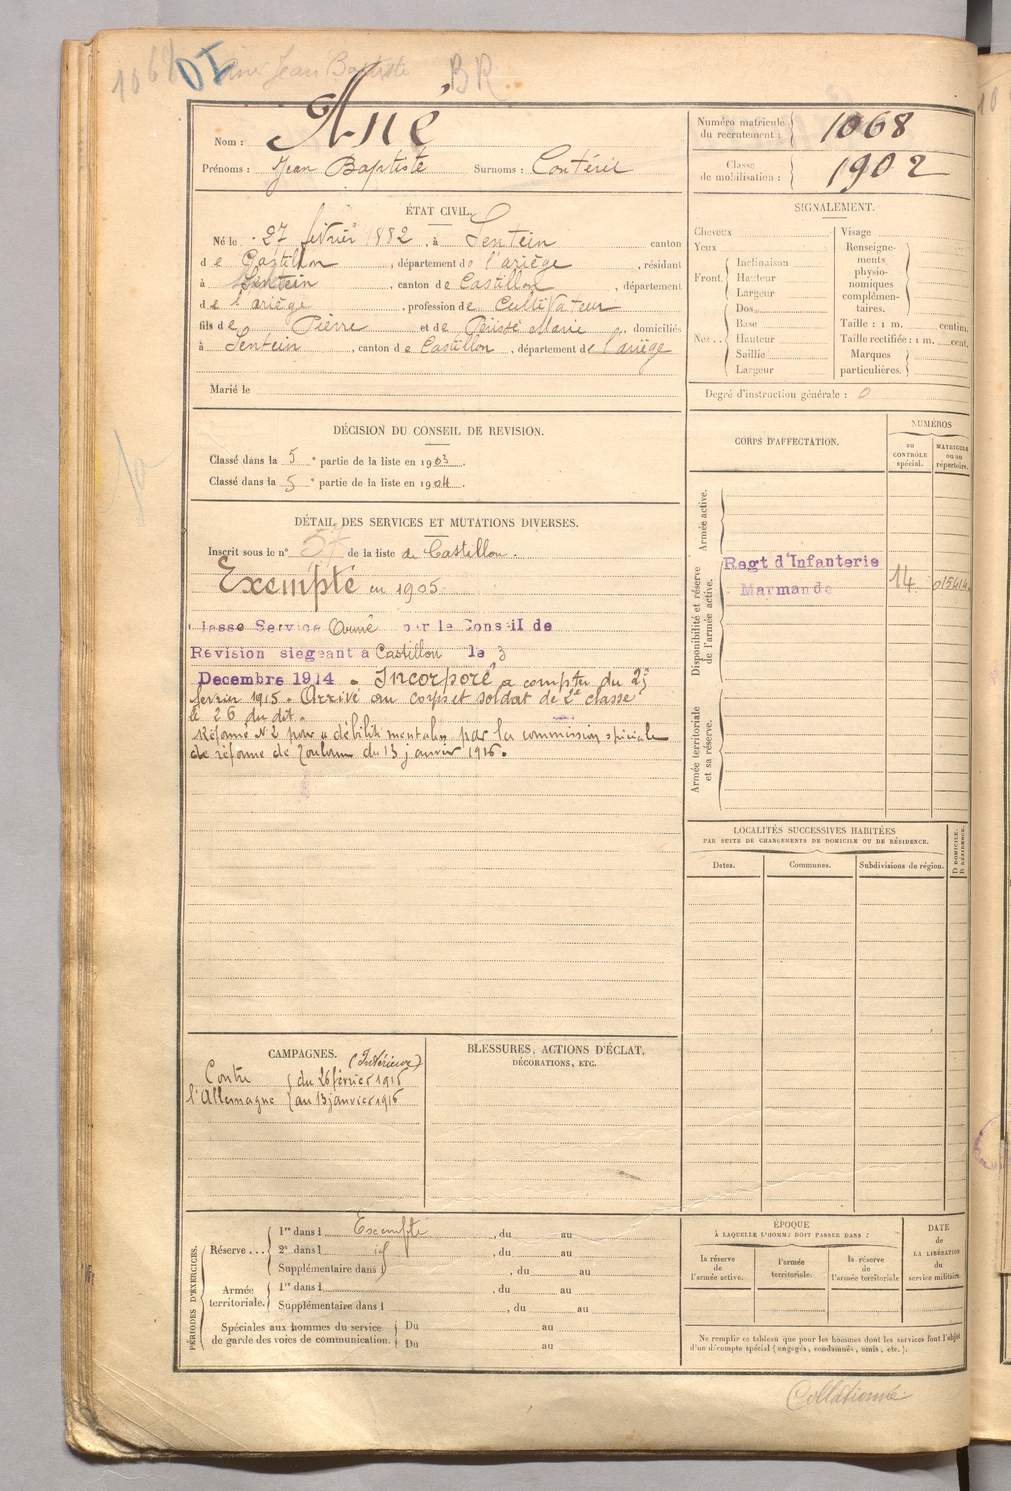 1068
Ané Jean Baptiste
BR
Nom : Ané
Prénoms : Jean Baptiste Surnoms :
Numéro matricule du recrutement : 1068
Classe de mobilisation : 1902
ÉTAT CIVIL.
Né le 27 février 1882, à Sentein canton
de Castillon, département de l'ariège, résidant
à Sentein, canton de Castillon, département
de l'ariège, profession de Cultivateur
fils de Pierre et de Marie domiciliés
à Sentein, canton de Castillon, département de l'ariège
Marié le
SIGNALEMENT.
Cheveux
Yeux
Front. Inclinaison
Hauteur
Largeur
Nez. Dos
Base
Hauteur
Saillie
Largeur
Visage
Renseigne-
ments
physio-
nomiques
complémen-
taires.
Taille : 1 m. centim.
Taille rectifiée : 1 m. cent.
Marques
particulières.
Degré d'instruction générale : 0
DÉCISION DU CONSEIL DE REVISION.
Classé dans la 5e partie de la liste en 1903.
Classé dans la 5e partie de la liste en 1904.
DÉTAIL DES SERVICES ET MUTATIONS DIVERSES.
Inscrit sous le n° 57 de la liste de Castillon.
Exempté en 1905.
Classe Service Armé par le Conseil de
Revision siegeant à Castillon le 3
Decembre 1914. Incorporé a compter du 25
fevrier 1915. Arrivé au corps et soldat de 2e classe
le 26 du dit.
Réformé N°2 pour "débilité mentale" par la commission spéciale
de réforme de Toulouse du 13 janvier 1916.
CORPS D'AFFECTATION.
NUMÉROS
au CONTRÔLE spécial.
MATRICULE ou au répertoire.
Armée active.
Disponibilité et réserve de l'armée active.
Regt d'Infanterie
Marmande
14
Armée territoriale et sa réserve.
LOCALITÉS SUCCESSIVES HABITÉES
PAR SUITE DE CHANGEMENTS DE DOMICILE OU DE RÉSIDENCE.
Dates. Communes. Subdivisions de région. D DOMICILE. R RÉSIDENCE.
CAMPAGNES. (Intérieur)
Contre du 26 février 1915
l'Allemagne au 13 janvier 1916
BLESSURES, ACTIONS D'ÉCLAT,
DÉCORATIONS, ETC.
PÉRIODES D'EXERCICES.
Réserve... 1re dans l Exempté, du au
2e dans l id, du au
Supplémentaire dans l, du au
Armée territoriale. 1re dans l, du au
Supplémentaire dans l, du au
Spéciales aux hommes du service Du au
de garde des voies de communication. Du au
ÉPOQUE
À LAQUELLE L'HOMME DOIT PASSER DANS :
la réserve de l'armée active.
l'armée territoriale.
la réserve de l'armée territoriale
DATE de LA LIBÉRATION du service militaire.
Ne remplir ce tableau que pour les hommes dont les services font l'objet
d'un décompte spécial (engagés, condamnés, omis, etc.).
Collationné